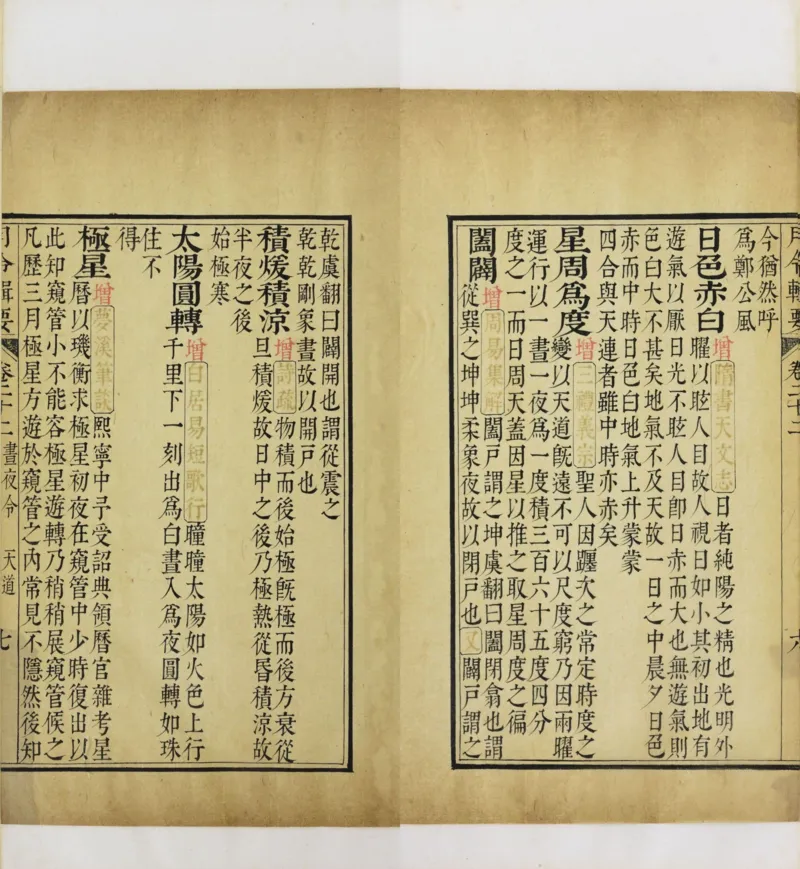 月令輯要 卷二十二 六
今猶然呼
爲鄭公風
日色赤白 增 隋書天文志 日者純陽之精也光明外
曜以眩人目故人視日如小其初出地有
遊氣以厭日光不眩人目卽日赤而大也無遊氣則
色白大不甚矣地氣不及天故一日之中晨夕日色
赤而中時日色白地氣上升蒙蒙
四合與天連者雖中時亦赤矣
星周爲度 增 三禮義宗 聖人因躔次之常定時度之
變以天道旣遠不可以尺度窮乃因兩曜
運行以一晝一夜爲一度積三百六十五度四分
度之一而日周天蓋因星以推之取星周度之徧
闔闢 增 周易集解 闔戸謂之坤虞翻曰闔閉翕也謂
從巽之坤坤柔象夜故以閉戸也 又 闢戸謂之
乾虞翻曰闢開也謂從震之
乾乾剛象晝故以開戸也
積煖積涼 增 詩疏 物積而後始極旣極而後方衰從
旦積煖故日中之後乃極熱從昏積涼故
半夜之後
始極寒
太陽圓轉 增 白居易短歌行 曈曈太陽如火色上行
千里下一刻出爲白晝入爲夜圓轉如珠
住不
得
極星 增 夢溪筆談 熙寧中予受詔典領曆官雜考星
曆以璣衡求極星初夜在窺管中少時復出以
此知窺管小不能容極星遊轉乃稍稍展窺管候之
凡歷三月極星方遊於窺管之內常見不隱然後知
月令輯要 卷二十二 晝夜令 天道 七